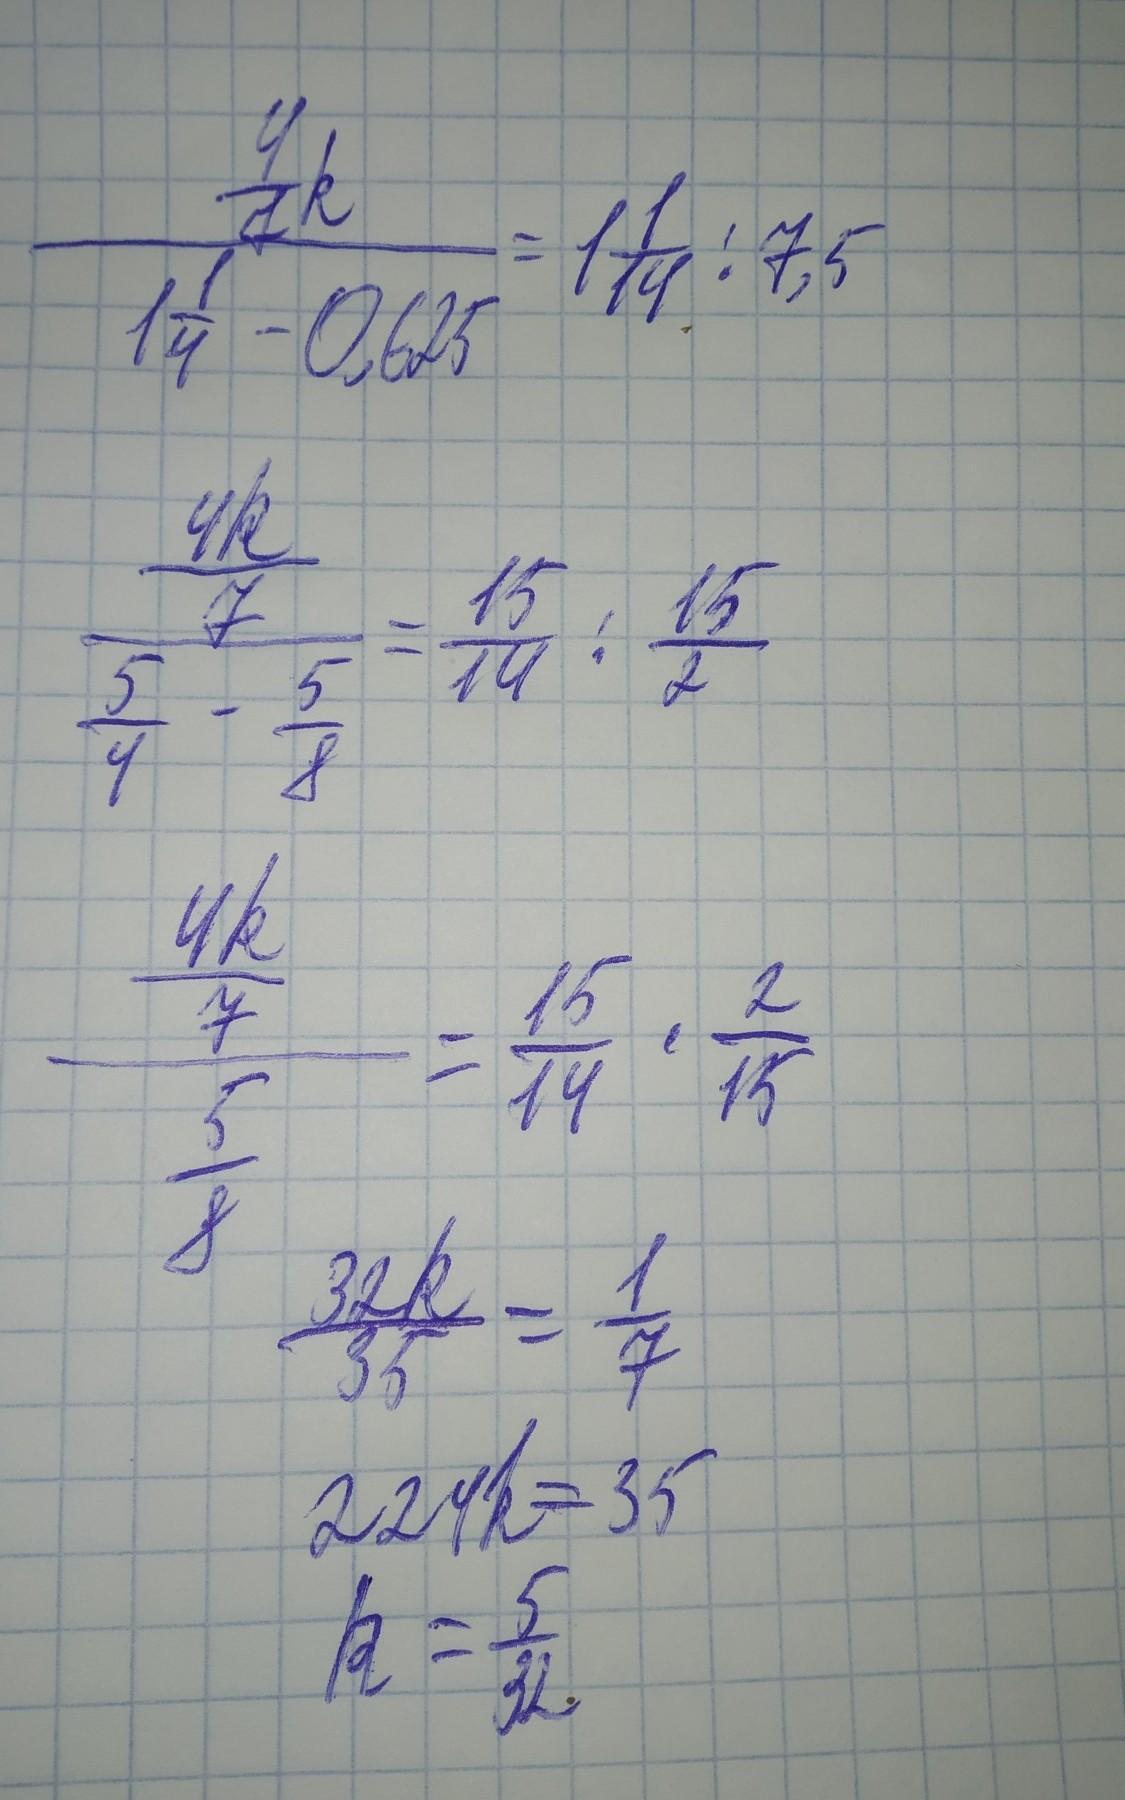 4/7 k / (1 1/4 - 0,625) = 1 1/14 : 7,5
(4k/7) / (5/4 - 5/8) = 15/14 : 15/2
(4k/7) / (5/8) = 15/14 · 2/15
32k/35 = 1/7
224k = 35
k = 5/32.